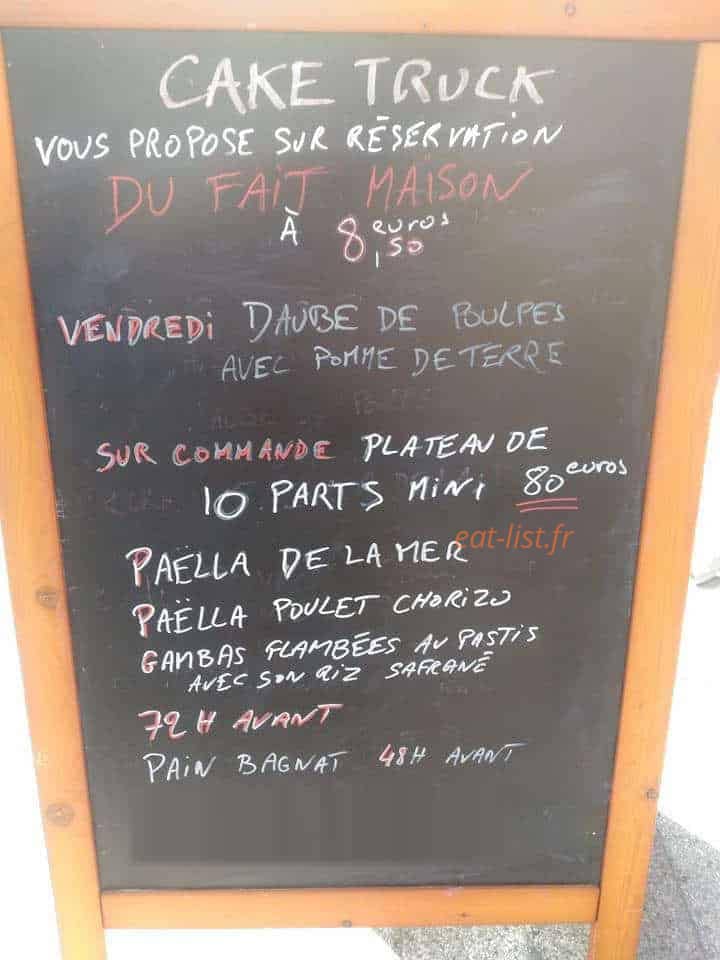 CAKE TRUCK
VOUS PROPOSE SUR RÉSERVATION
DU FAIT MAISON
À 8,50 euros
VENDREDI DAUBE DE POULPES
AVEC POMME DE TERRE
SUR COMMANDE PLATEAU DE
10 PARTS MINI 80 euros
eat-list.fr
PAËLLA DE LA MER
PAËLLA POULET CHORIZO
GAMBAS FLAMBÉES AU PASTIS
AVEC SON RIZ SAFRANÉ
72H AVANT
PAIN BAGNAT 48H AVANT